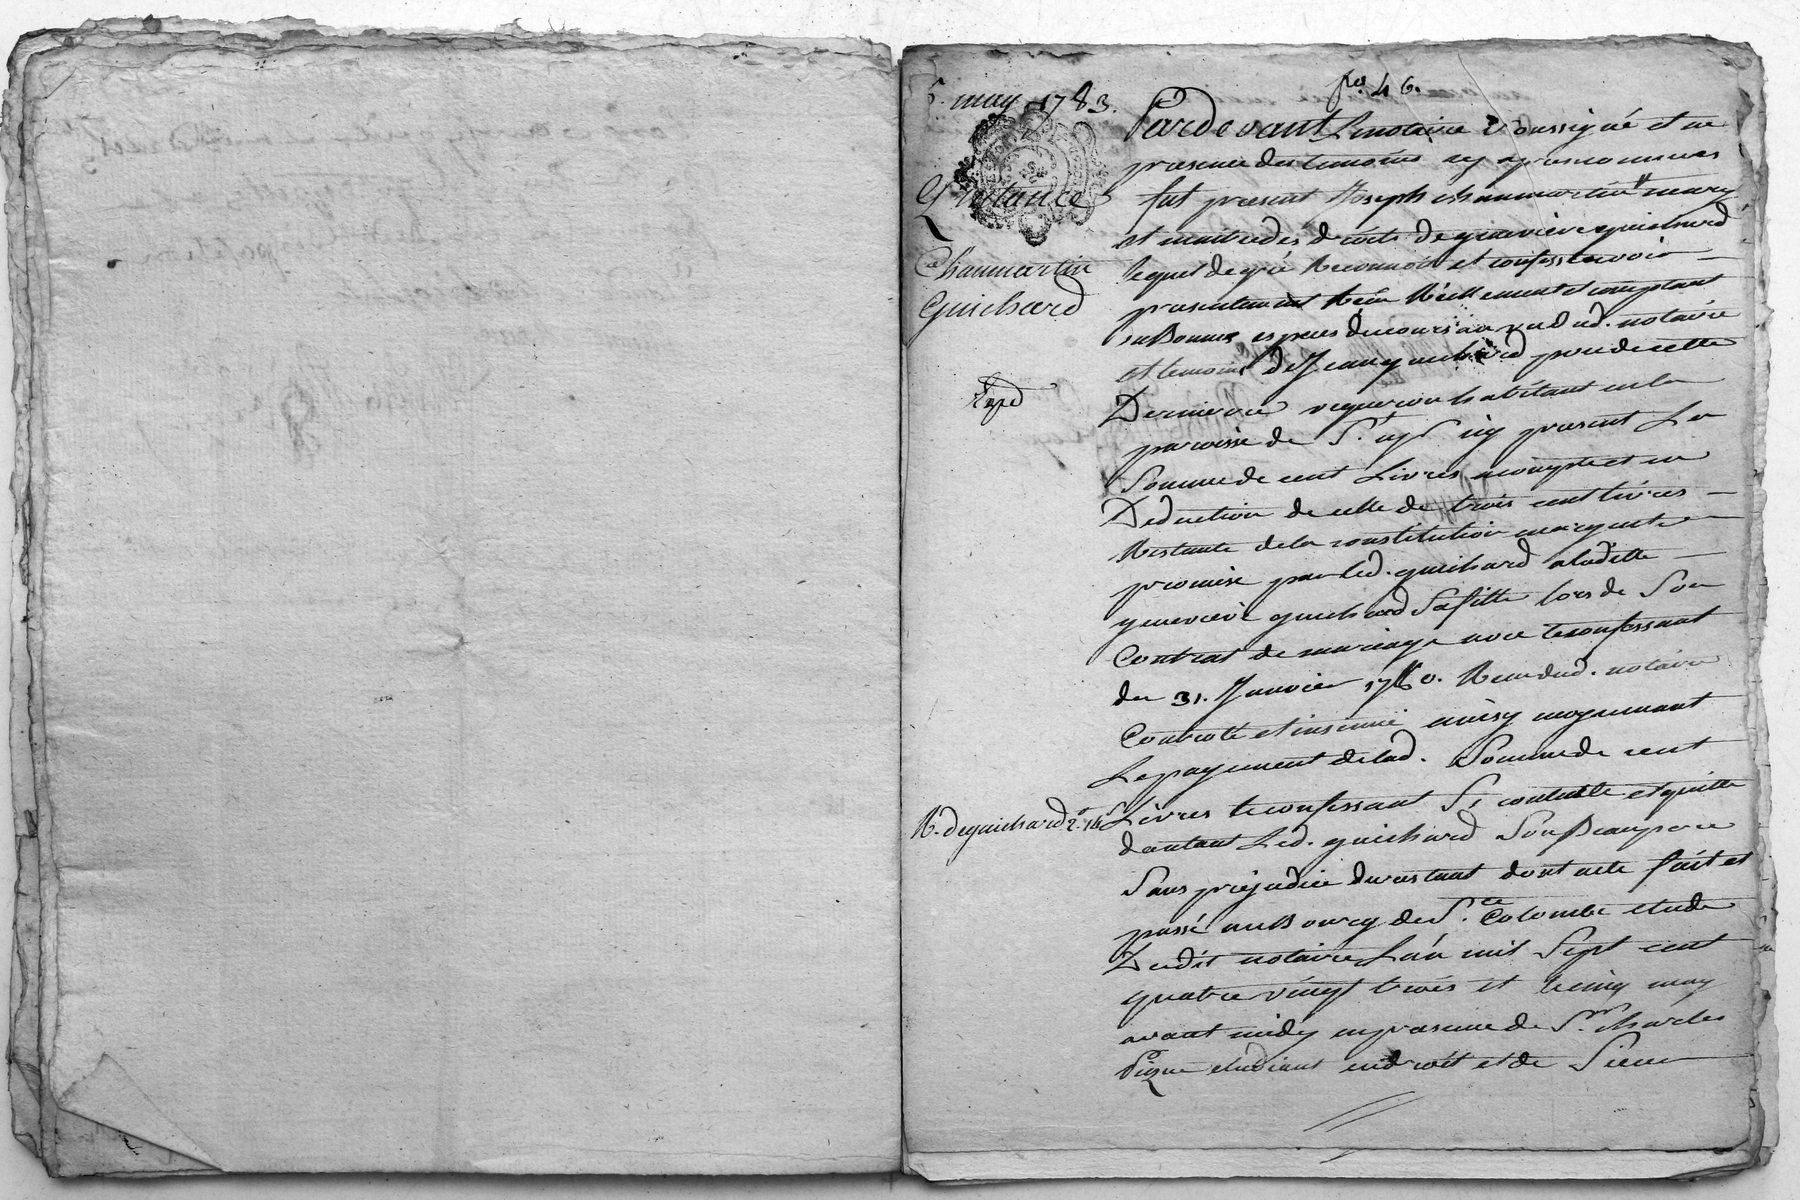 5. may 1783.
Quittance
Chanmartin
Guichard
Expd
R. deguichard 2.#
fo. 46.
Pardevant Le notaire Soussigné et en
presence des temoins cy apres nommes
fut present Joseph Chanmartin mary
et maitre des droits de genevieve guichard
lequel de gré Reconnoit et confesse avoir
presentement Reçu Réellement et comptant
en Bonnes especes de cours au vu dud. notaire
et temoins de Jean guichard pere de cette
Derniere vigneron habitant en la
paroisse de St cyr icy present La
Somme de cent Livres acompte et en
Deduction de celle de trois cent livres
Restante de la constitution
promise par led. guichard a laditte
genevieve guichard Sa fille lors de Son
Contrat de mariage avec le confessant
du 31. Janvier 1780. Recu dud. notaire
Controllé et insinué ainsy moyennant
Le payement de lad. Somme de cent
Livres le confessant Se contente et quitte
dautant Led. guichard Son Beaupere
Sans prejudice du restant dont acte fait et
passé au Bourg de Ste Colombe etude
Dudit notaire L'an mil Sept cent
quatre vingt trois et le cinq may
avant midy en presence de Sr. charles
etudiant en droit et de Sieur